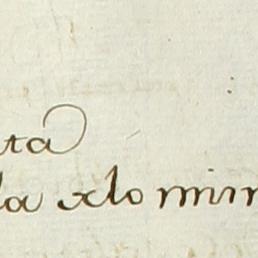 ta
la xlo min